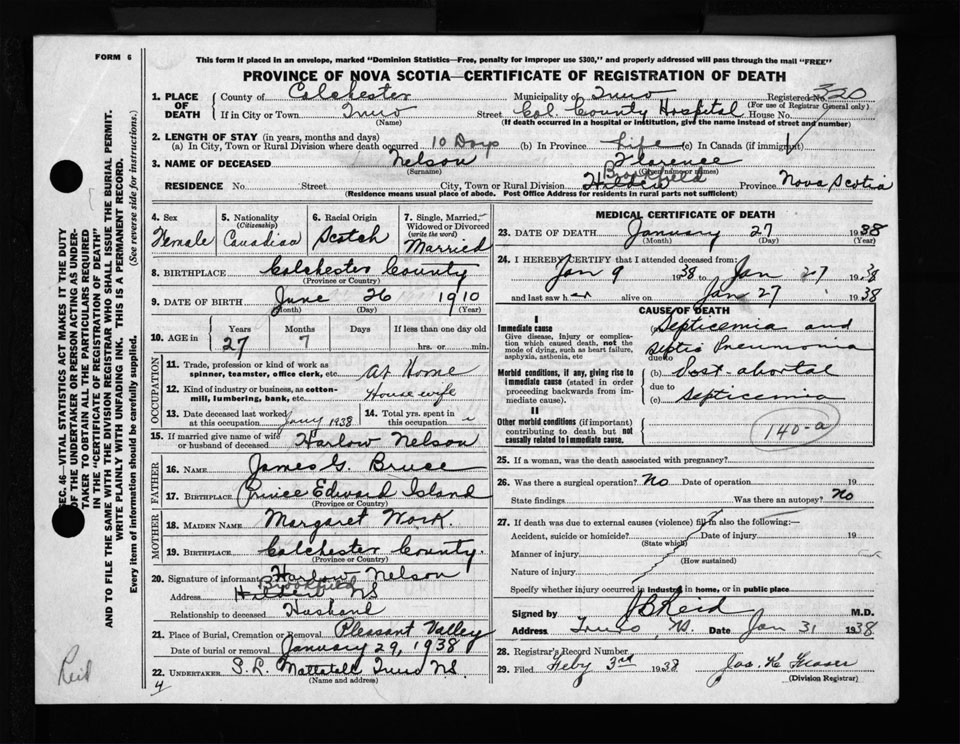 FORM 6
This form if placed in an envelope, marked "Dominion Statistics—Free, penalty for improper use $300," and properly addressed will pass through the mail "FREE"
PROVINCE OF NOVA SCOTIA—CERTIFICATE OF REGISTRATION OF DEATH
1. PLACE OF DEATH County of Colchester Municipality of Truro Registered No. 320
(For use of Registrar General only)
If in City or Town Truro Street Col. County Hospital House No.
(Name) (If death occurred in a hospital or institution, give the name instead of street and number)
2. LENGTH OF STAY (in years, months and days)
(a) In City, Town or Rural Division where death occurred 10 Days (b) In Province Life (c) In Canada (if immigrant)
3. NAME OF DECEASED Nelson Florence
(Surname) (Given name or names)
Brookfield
RESIDENCE No. Street City, Town or Rural Division Hilden Province Nova Scotia
(Residence means usual place of abode. Post Office Address for residents in rural parts not sufficient)
4. Sex Female
5. Nationality (Citizenship) Canadian
6. Racial Origin Scotch
7. Single, Married, Widowed or Divorced (write the word) Married
8. BIRTHPLACE Colchester County
(Province or County)
9. DATE OF BIRTH June 26 1910
(Month) (Day) (Year)
10. AGE in Years Months Days If less than one day old
27 7 hrs. or min.
OCCUPATION
11. Trade, profession or kind of work as spinner, teamster, office clerk, etc. At Home
12. Kind of industry or business, as cotton-mill, lumbering, bank, etc. Housewife
13. Date deceased last worked at this occupation Jany 1938
14. Total yrs. spent in this occupation
15. If married give name of wife or husband of deceased Harlow Nelson
FATHER
16. NAME James G. Bruce
17. BIRTHPLACE Prince Edward Island
(Province or County)
MOTHER
18. MAIDEN NAME Margaret Work.
19. BIRTHPLACE Colchester County.
(Province or County)
20. Signature of informant Harlow Nelson
Brookfield
Address Hilden NS
Relationship to deceased Husband
21. Place of Burial, Cremation or Removal Pleasant Valley
Date of burial or removal January 29, 1938
22. UNDERTAKER S. R. Mattatall Truro N.S.
(Name and address)
4
MEDICAL CERTIFICATE OF DEATH
23. DATE OF DEATH January 27 1938
(Month) (Day) (Year)
24. I HEREBY CERTIFY that I attended deceased from:
Jan 9 1938 to Jan 27 1938
and last saw her alive on Jan 27 1938
CAUSE OF DEATH
I
Immediate cause
Give disease, injury or complication which caused death, not the mode of dying, such as heart failure, asphyxia, asthenia, etc
(a) Septicemia and
Septic Pneumonia
due to
Morbid conditions, if any, giving rise to immediate cause (stated in order proceeding backwards from immediate cause).
(b) Post-abortal
due to
(c) Septicemia
II
Other morbid conditions (if important) contributing to death but not causally related to immediate cause.
140-a
25. If a woman, was the death associated with pregnancy?
26. Was there a surgical operation? No Date of operation 19
State findings Was there an autopsy? No
27. If death was due to external causes (violence) fill in also the following:—
Accident, suicide or homicide? Date of injury 19
(State which)
Manner of injury
(How sustained)
Nature of injury
Specify whether injury occurred in industry, in home, or in public place
Signed by J B Reid M.D.
Address Truro, N.S. Date Jan 31 1938.
28. Registrar's Record Number
29. Filed Feby 3rd 1938 Jas. K Fraser
(Division Registrar)
SEC. 46—VITAL STATISTICS ACT MAKES IT THE DUTY
OF THE UNDERTAKER OR PERSON ACTING AS UNDER-
TAKER TO OBTAIN ALL THE PARTICULARS REQUIRED
IN THE "CERTIFICATE OF REGISTRATION OF DEATH"
AND TO FILE THE SAME WITH THE DIVISION REGISTRAR WHO SHALL ISSUE THE BURIAL PERMIT.
WRITE PLAINLY WITH UNFADING INK. THIS IS A PERMANENT RECORD.
Every item of information should be carefully supplied. (See reverse side for instructions.)
Reid